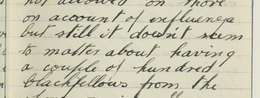 not allowed on shore
on account of influenza
but still it doesn't seem
to matter about having
a couple of hundred
blackfellows from the